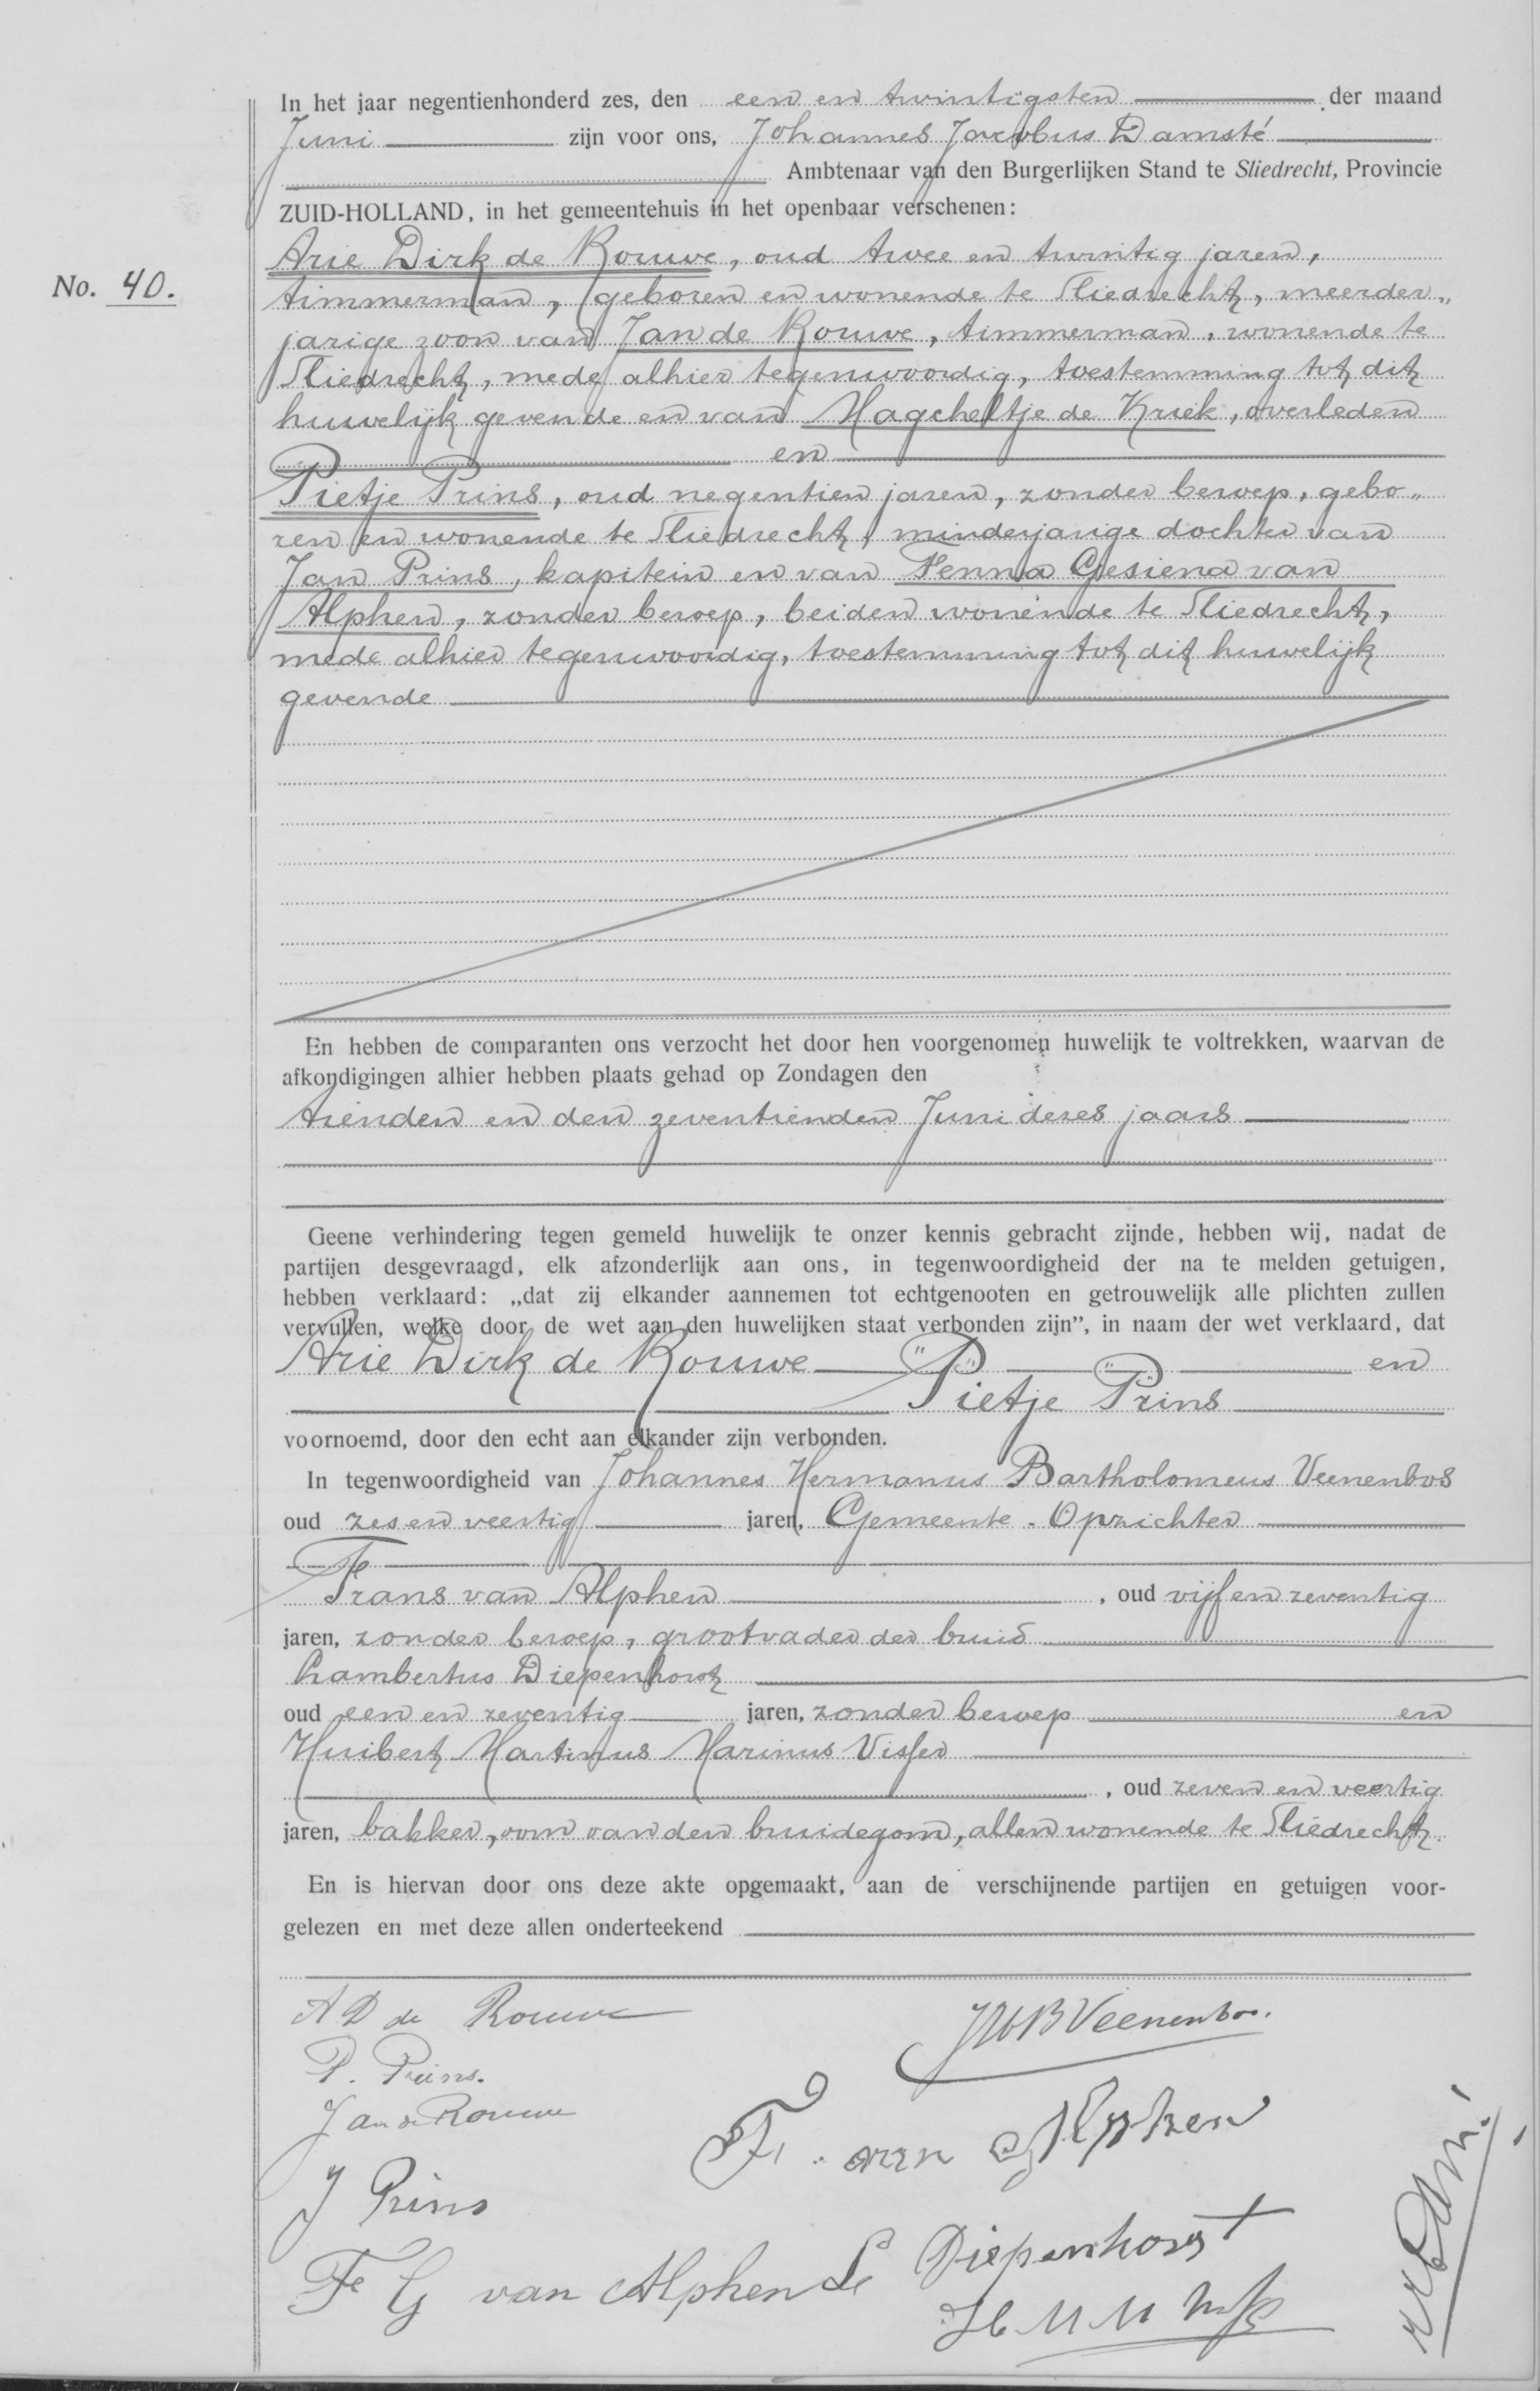 In het jaar negentienhonderd zes, den een en twintigsten der maand
Juni zijn voor ons, Johannes Jacobus Damsté
Ambtenaar van den Burgerlijken Stand te Sliedrecht, Provincie
ZUID-HOLLAND, in het gemeentehuis in het openbaar verschenen:
Arie Dirk de Rouwe, oud twee en twintig jaren,
No. 40.
timmerman, geboren en wonende te Sliedrecht, meerder„
jarige zoon van Jan de Rouwe, timmerman, wonende te
Sliedrecht, mede alhier tegenwoordig, toestemming tot dit
huwelijk gevende en van Magcheltje de Kriek, overleden
en
Pietje Prins, oud negentien jaren, zonder beroep, gebo„
ren en wonende te Sliedrecht, minderjarige dochter van
Jan Prins, kapitein en van Fenna Gesiena van
Alphen, zonder beroep, beiden wonende te Sliedrecht,
mede alhier tegenwoordig, toestemming tot dit huwelijk
gevende
En hebben de comparanten ons verzocht het door hen voorgenomen huwelijk te voltrekken, waarvan de
afkondigingen alhier hebben plaats gehad op Zondagen den
tienden en den zeventienden Juni dezes jaars
Geene verhindering tegen gemeld huwelijk te onzer kennis gebracht zijnde, hebben wij, nadat de
partijen desgevraagd, elk afzonderlijk aan ons, in tegenwoordigheid der na te melden getuigen,
hebben verklaard: „dat zij elkander aannemen tot echtgenooten en getrouwelijk alle plichten zullen
vervullen, welke door de wet aan den huwelijken staat verbonden zijn”, in naam der wet verklaard, dat
Arie Dirk de Rouwe en
Pietje Prins
voornoemd, door den echt aan elkander zijn verbonden.
In tegenwoordigheid van Johannes Hermanus Bartholomeus Veenenbos
oud zes en veertig jaren, Gemeente-Opzichter
Frans van Alphen, oud vijf en zeventig
jaren, zonder beroep, grootvader der bruid
Lambertus Diepenhorst
oud een en zeventig jaren, zonder beroep en
Huibert Martinus Marinus Visser
, oud zeven en veertig
jaren, bakker, oom van den bruidegom, allen wonende te Sliedrecht.
En is hiervan door ons deze akte opgemaakt, aan de verschijnende partijen en getuigen voor-
gelezen en met deze allen onderteekend
A D de Rouwe
JHB Veenenbos.
P. Prins.
Jan de Rouwe
F. van Alphen
J Prins
L Diepenhorst
F G van Alphen
H M M